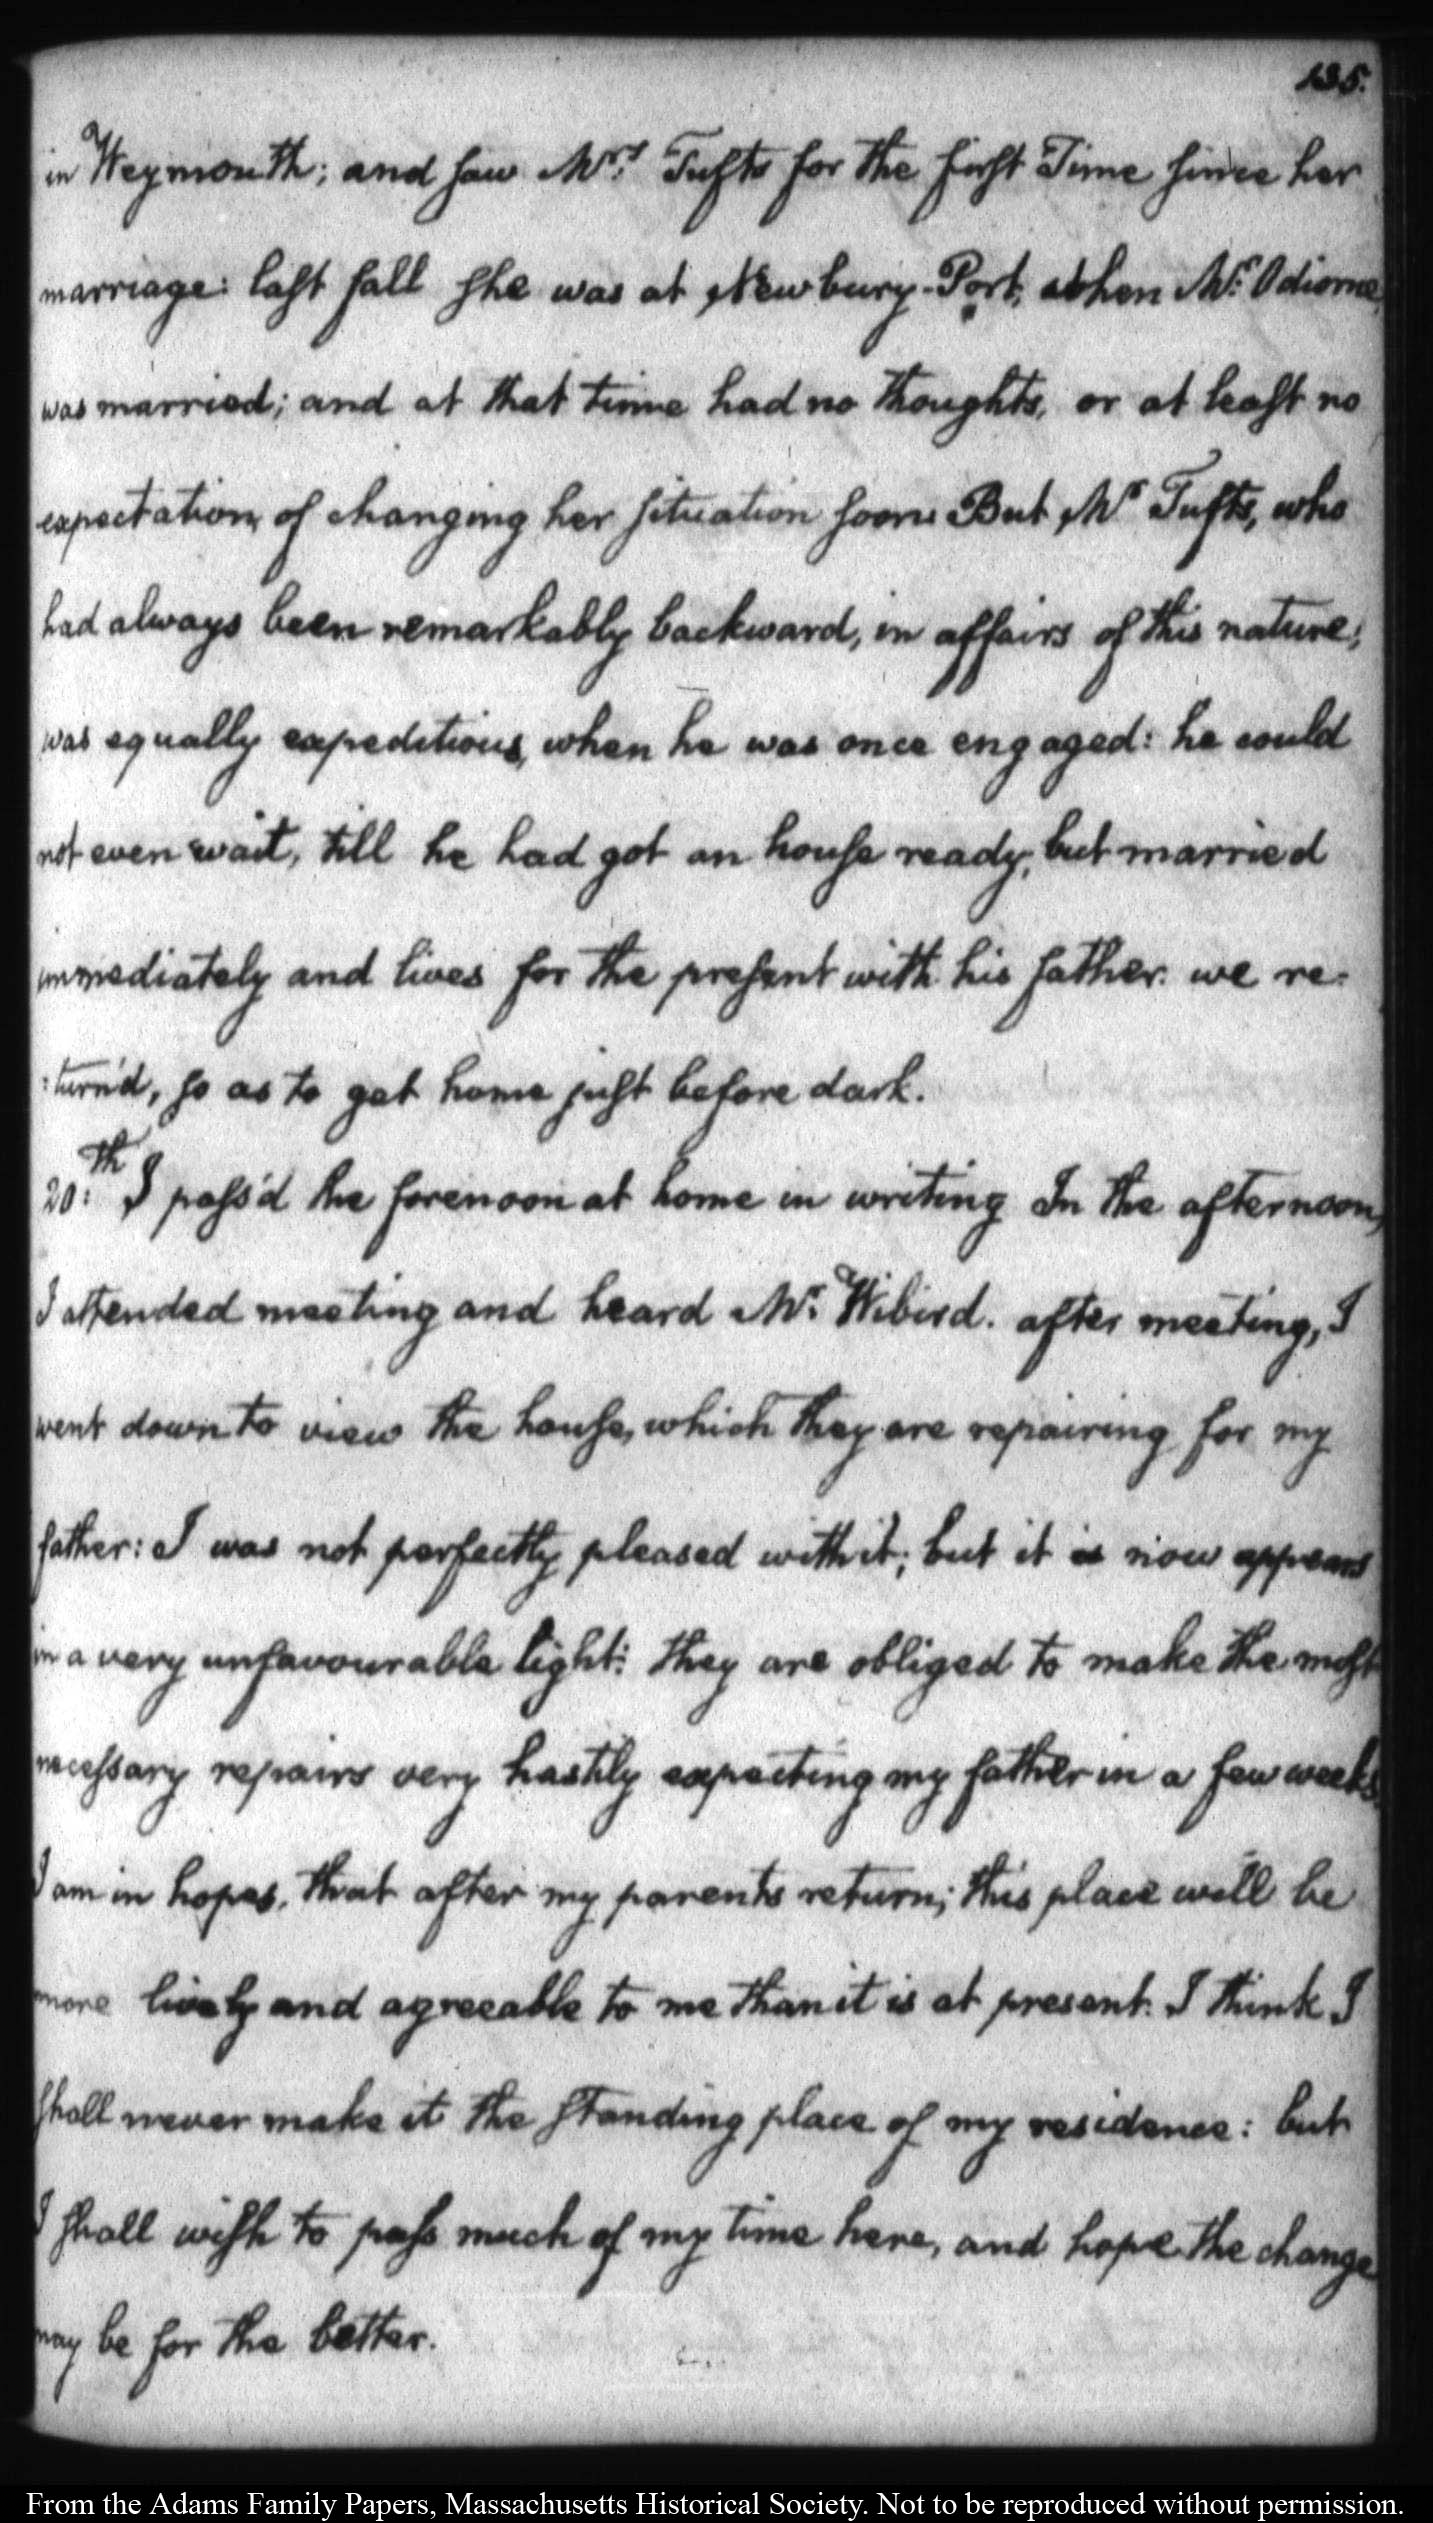 135.
in Weymouth; and saw Mrs. Tufts for the first Time since her
marriage: last fall she was at Newbury-Port, when Mr. Odiorne,
was married; and at that time had no thoughts, or at least no
expectation, of changing her situation soon. But Mr Tufts, who
had always been remarkably backward, in affairs of this nature,
was equally expeditious, when he was once engaged: he could
not even wait, till he had got an house ready, but married
immediately and lives for the present with his father. we re-
:turn'd, so as to get home just before dark.
20:th I pass'd the forenoon at home in writing In the afternoon,
I attended meeting and heard Mr. Wibird. after meeting, I
went down to view the house, which they are repairing for my
father: I was not perfectly pleased with it; but it is now appears
in a very unfavourable light: they are obliged to make the most
necessary repairs very hastily expecting my father in a few weeks.
I am in hopes, that after my parents return; this place will be
more lively and agreeable to me than it is at present. I think I
shall never make it the standing place of my residence: but
I shall wish to pass much of my time here, and hope the change
may be for the better.
From the Adams Family Papers, Massachusetts Historical Society. Not to be reproduced without permission.